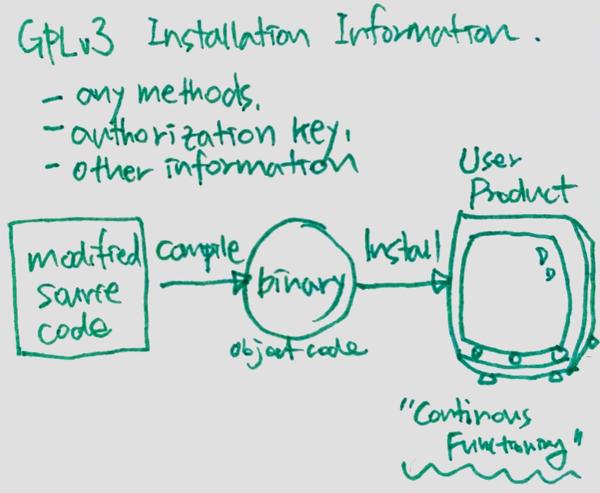 GPLv3 Installation Information.
- any methods,
- authorization key,
- other information
User
Product
modified
source
code
compile
binary
Install
object code
"Continous
Functioning"